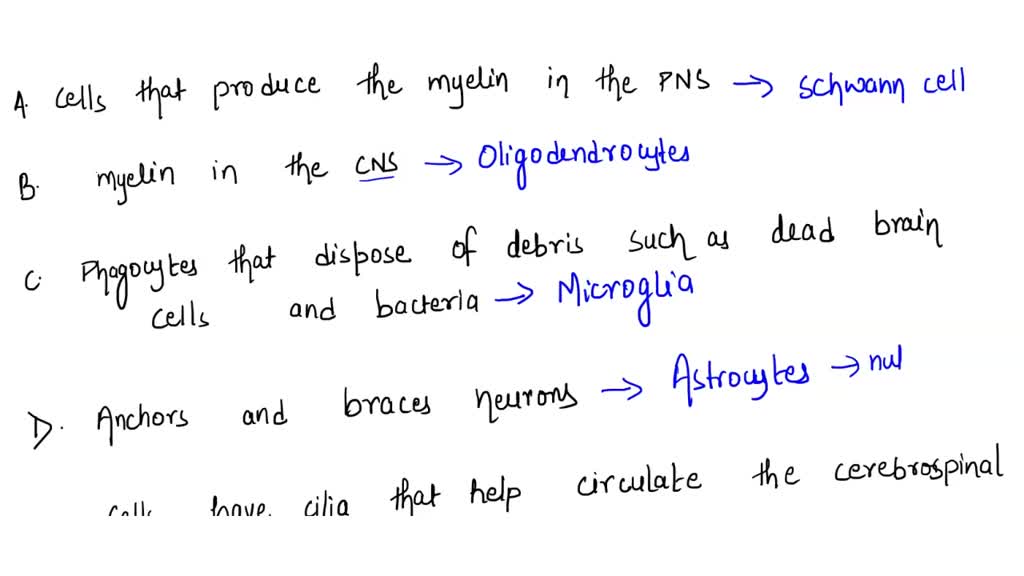 A. cells that produce the myelin in the PNS → schwann cell
B. myelin in the CNS → Oligodendrocytes
C. Phagocytes that dispose of debris such as dead brain
cells and bacteria → Microglia
D. Anchors and braces neurons → Astrocytes → nut
cells have cilia that help circulate the cerebrospinal